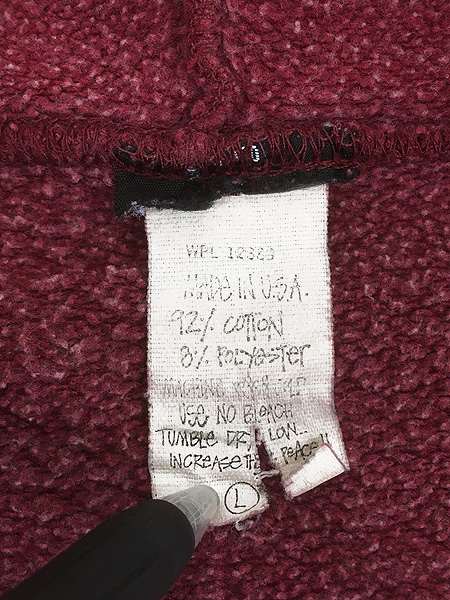 WPL 12369
MADE IN U.S.A.
92% COTTON
8% POLYESTER
MACHINE
USE NO BLEACH
TUMBLE DRY LOW...
INCREASE THE PEACE!!
L